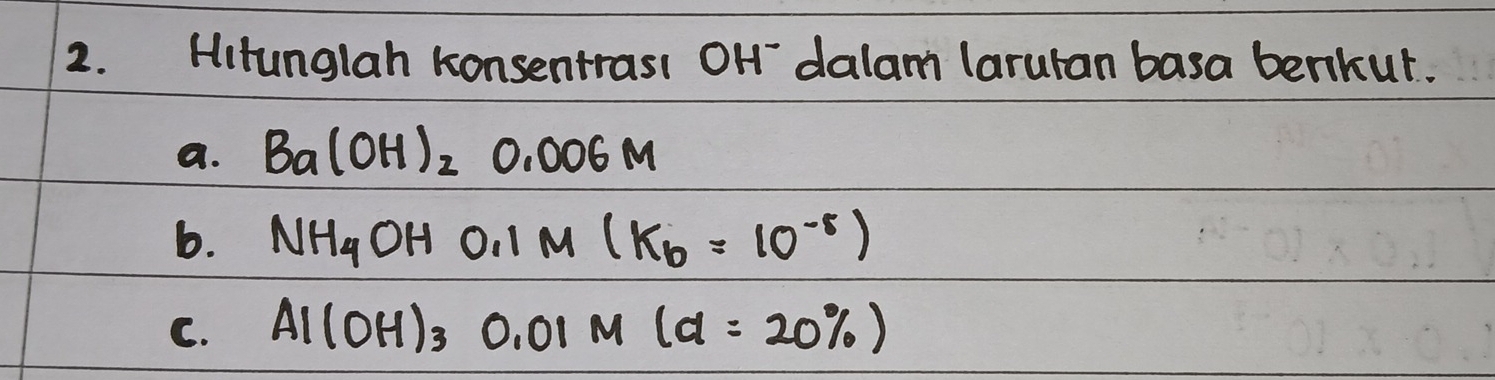 2. Hitunglah konsentrasi OH⁻ dalam larutan basa berikut.
a. Ba(OH)₂ 0,006 M
b. NH₄OH 0,1 M (Kb = 10⁻⁵)
c. Al(OH)₃ 0,01 M (α = 20%)